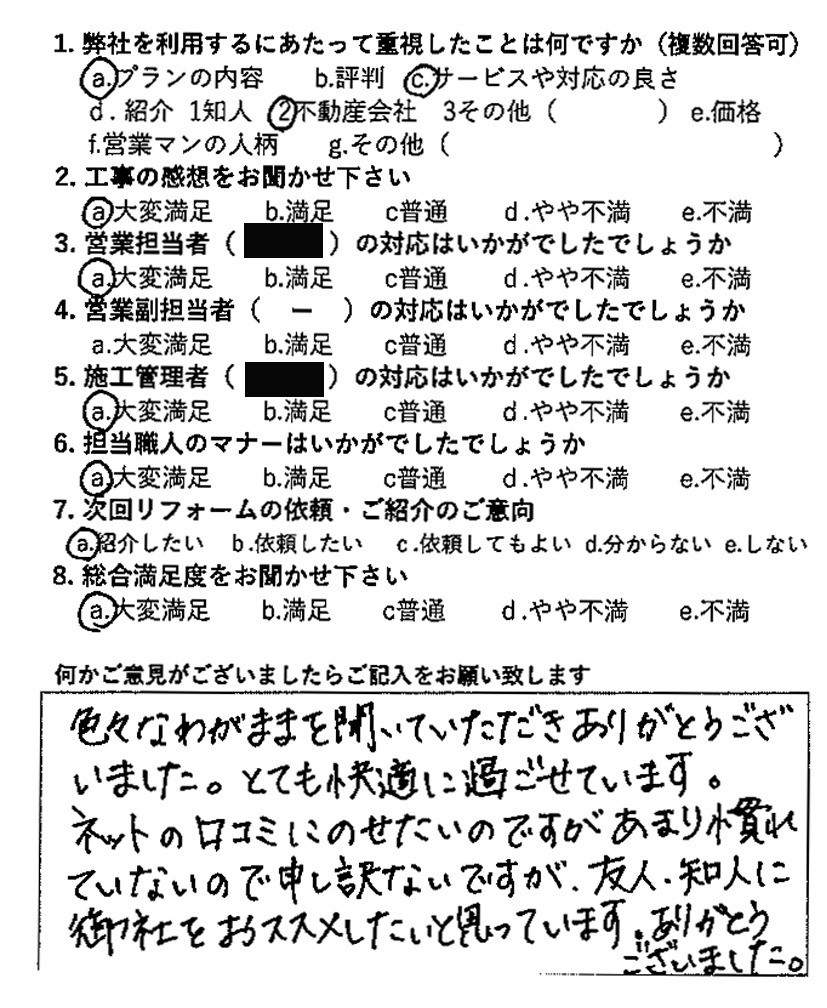 1. 弊社を利用するにあたって重視したことは何ですか（複数回答可）
a.プランの内容 b.評判 c.サービスや対応の良さ
d. 紹介 1知人 2不動産会社 3その他（ ） e.価格
f.営業マンの人柄 g.その他（ ）
2. 工事の感想をお聞かせ下さい
a大変満足 b.満足 c普通 d.やや不満 e.不満
3. 営業担当者（ ）の対応はいかがでしたでしょうか
a.大変満足 b.満足 c普通 d.やや不満 e.不満
4. 営業副担当者（ ー ）の対応はいかがでしたでしょうか
a.大変満足 b.満足 c普通 d.やや不満 e.不満
5. 施工管理者（ ）の対応はいかがでしたでしょうか
a.大変満足 b.満足 c普通 d.やや不満 e.不満
6. 担当職人のマナーはいかがでしたでしょうか
a大変満足 b.満足 c普通 d.やや不満 e.不満
7. 次回リフォームの依頼・ご紹介のご意向
a.紹介したい b.依頼したい c.依頼してもよい d.分からない e.しない
8. 総合満足度をお聞かせ下さい
a.大変満足 b.満足 c普通 d.やや不満 e.不満
何かご意見がございましたらご記入をお願い致します
色々なわがままを聞いていただきありがとうござ
いました。とても快適に過ごせています。
ネットの口コミにのせたいのですがあまり慣れ
ていないので申し訳ないですが、友人・知人に
御社をおススメしたいと思っています。ありがとう
ございました。